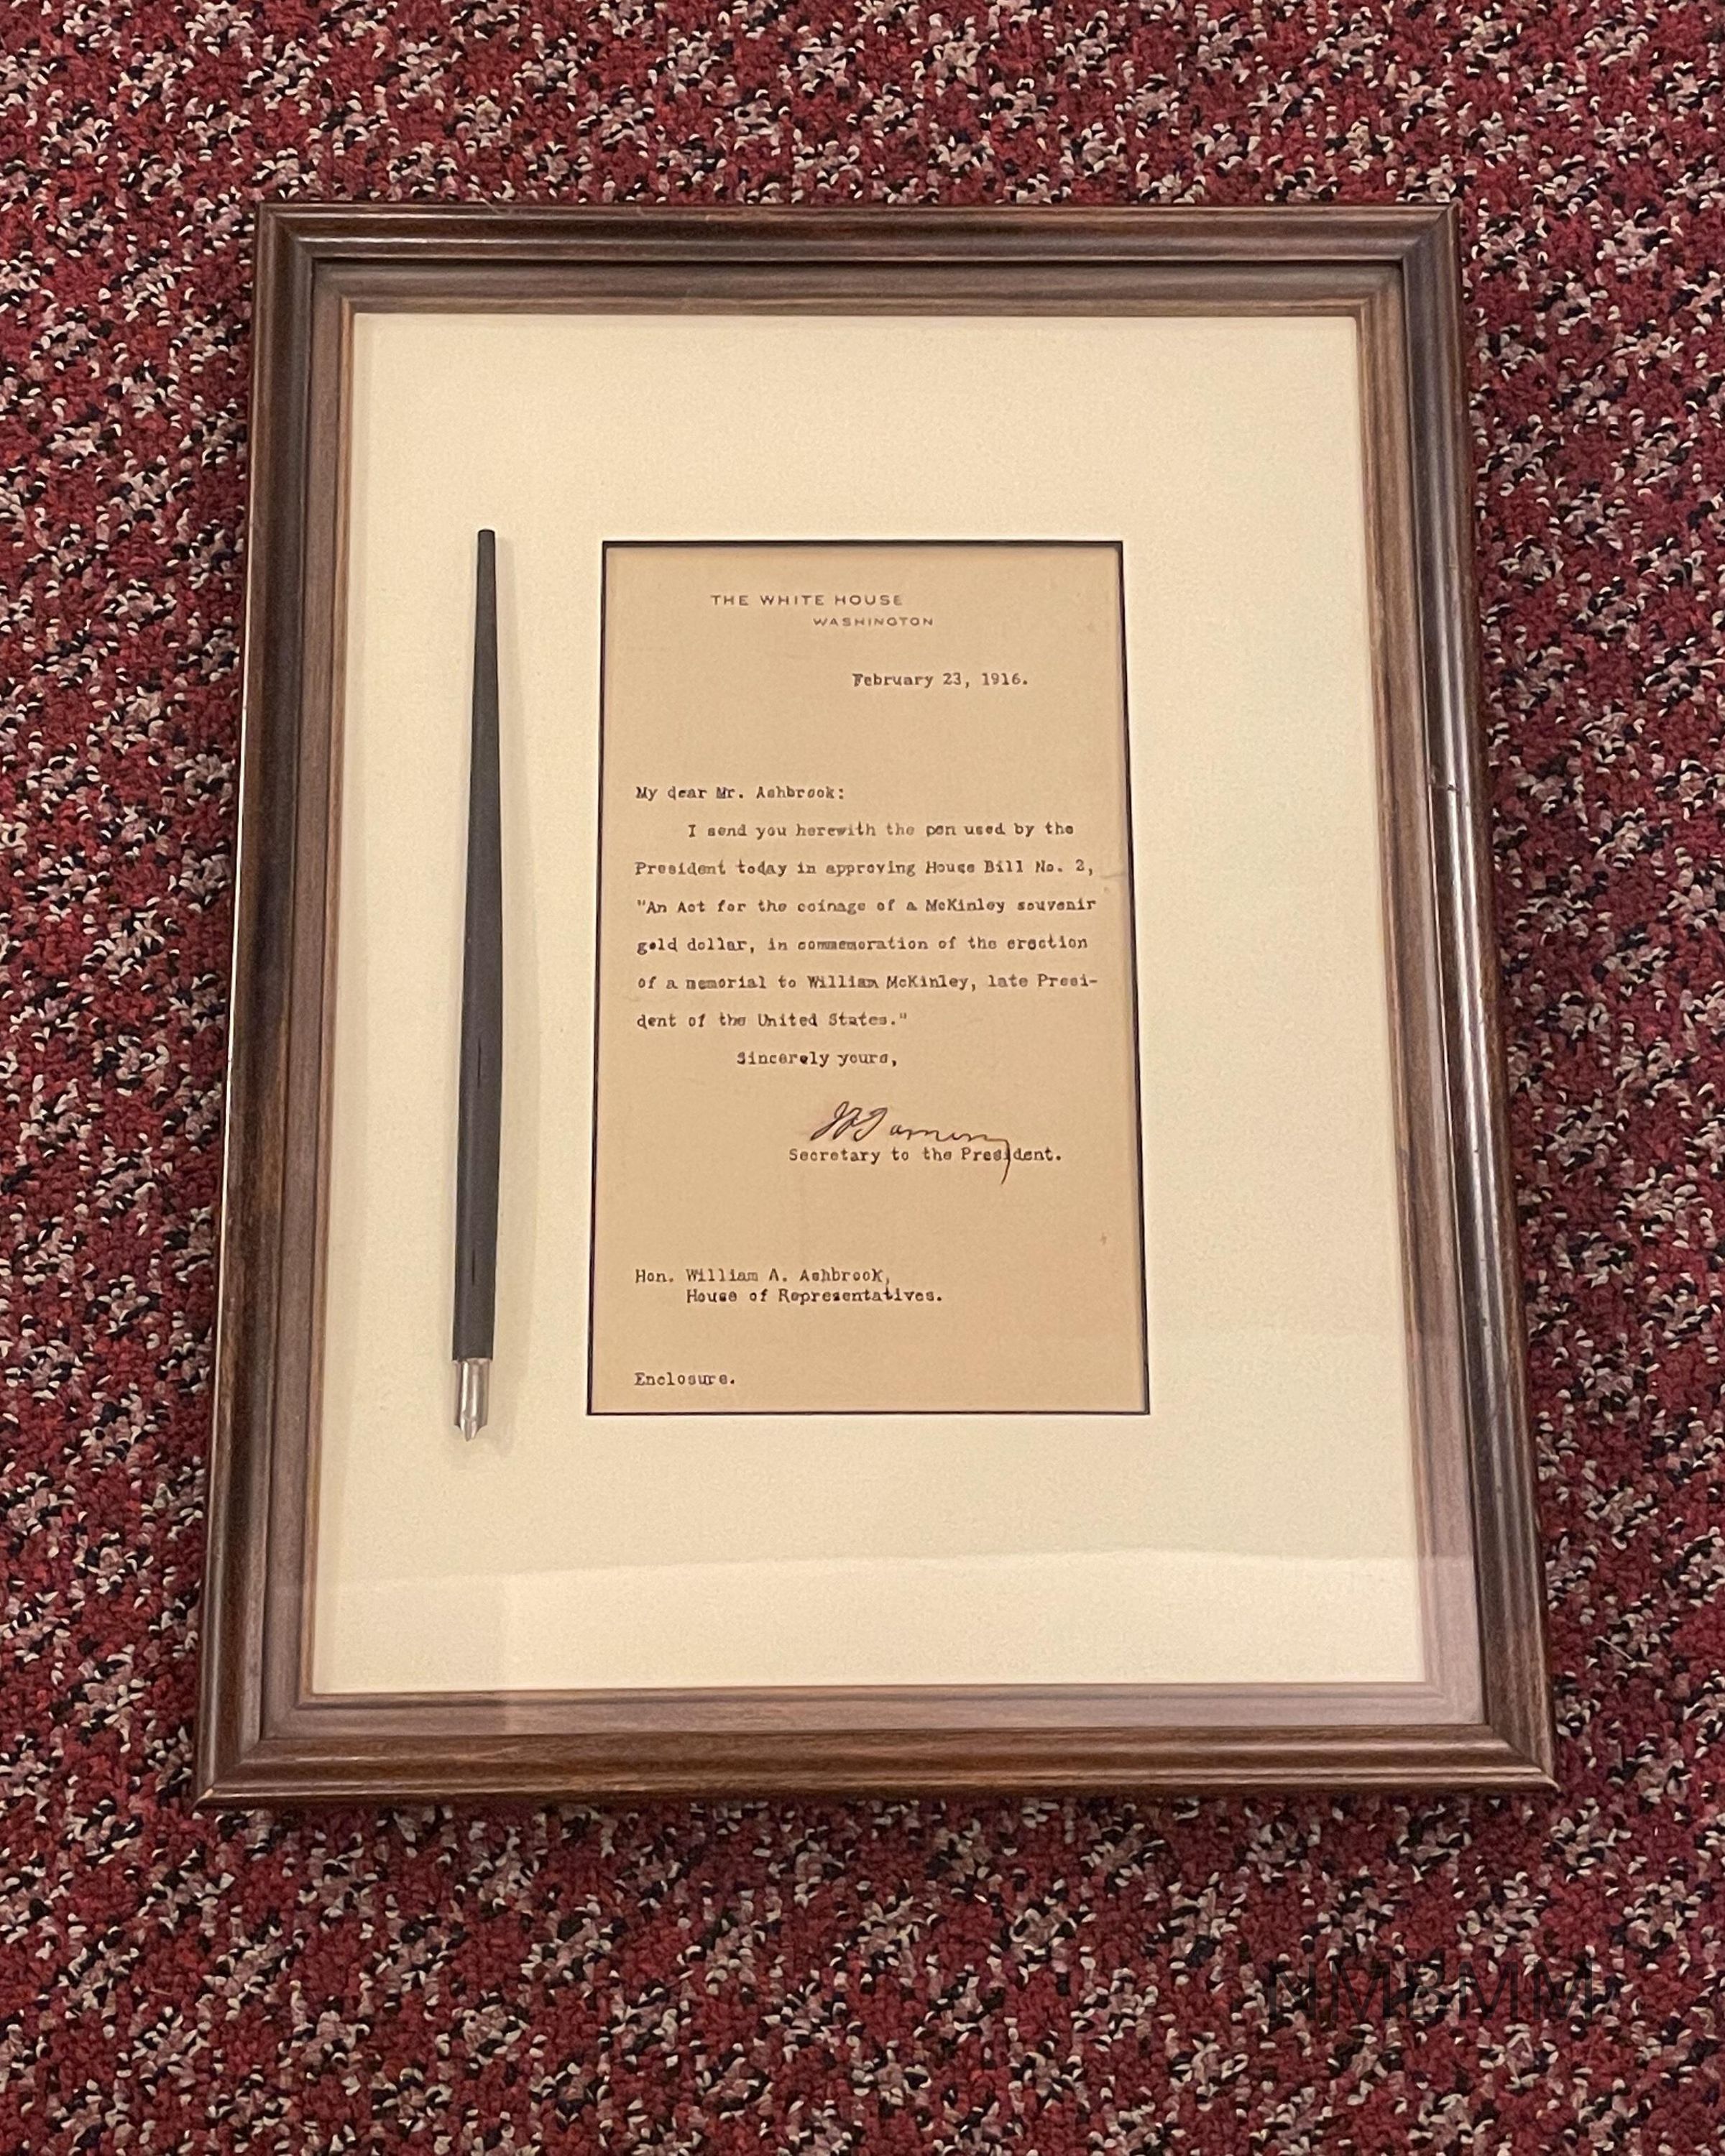 THE WHITE HOUSE
WASHINGTON
February 23, 1916.
My dear Mr. Ashbrook:
I send you herewith the pen used by the
President today in approving House Bill No. 2,
"An Act for the coinage of a McKinley souvenir
gold dollar, in commemoration of the erection
of a memorial to William McKinley, late Presi-
dent of the United States."
Sincerely yours,
Secretary to the President.
Hon. William A. Ashbrook,
House of Representatives.
Enclosure.
NMBMM